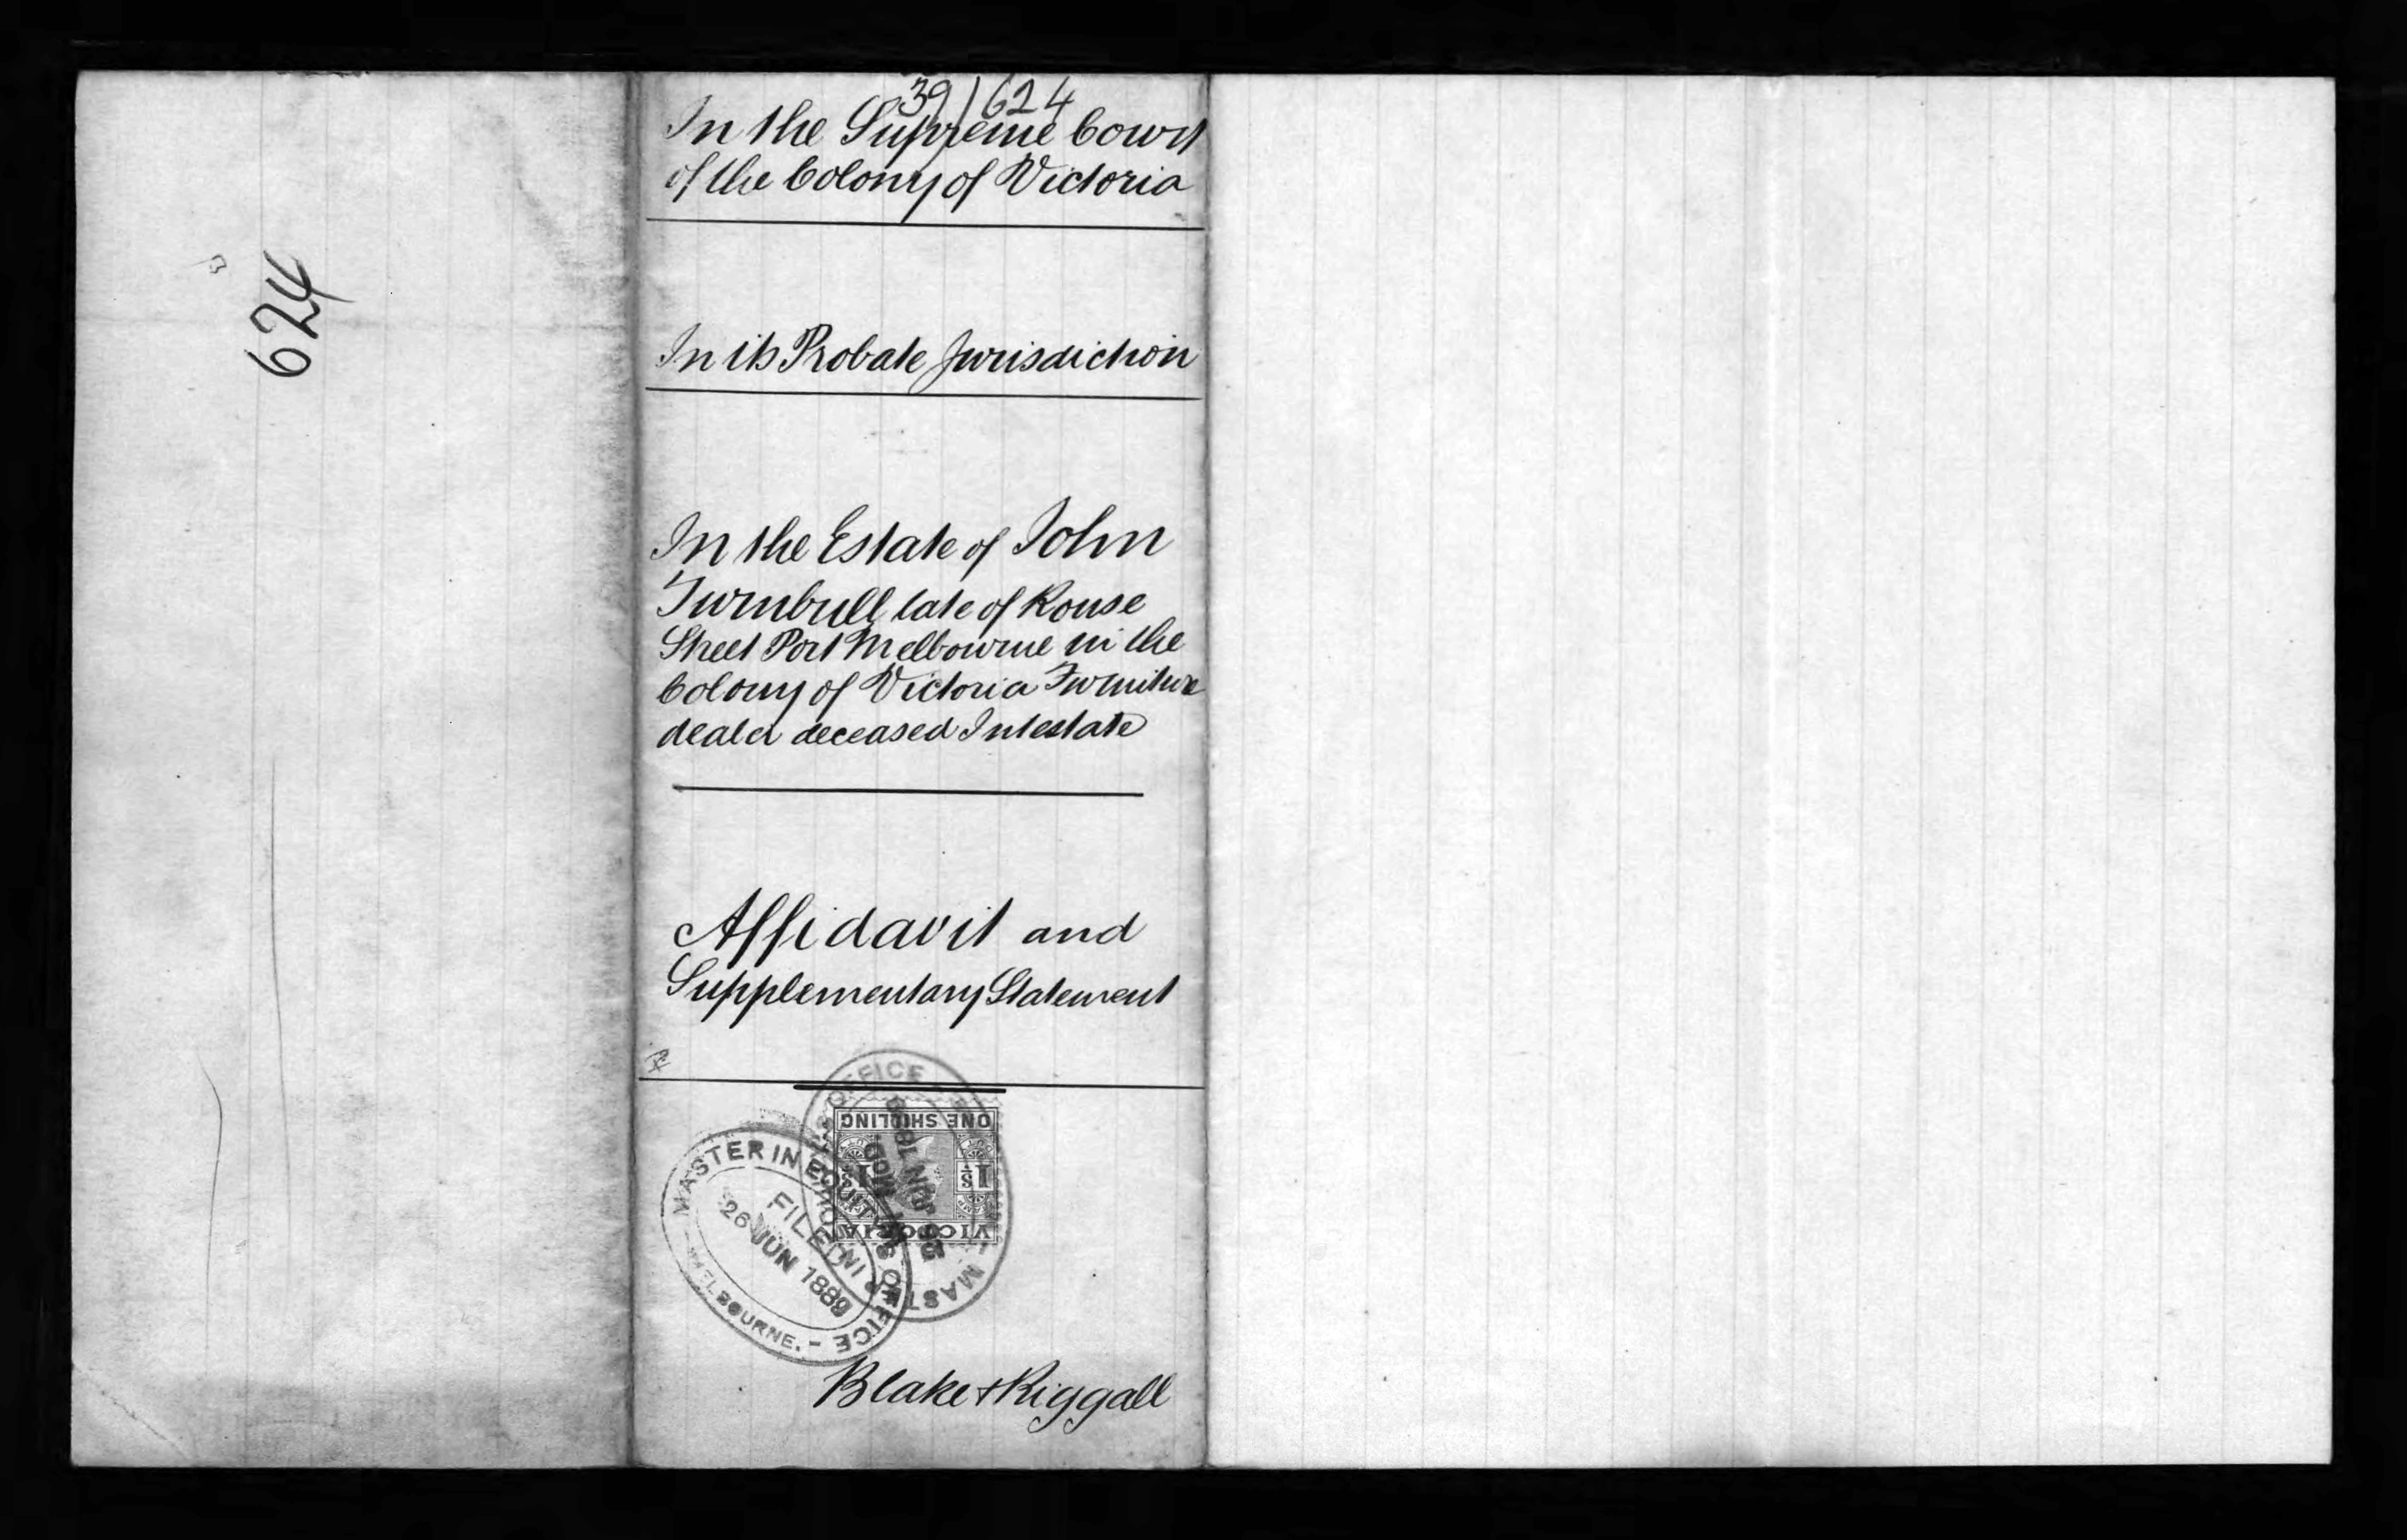 624
39/624
In the Supreme Court
of the Colony of Victoria
In its Probate Jurisdiction
In the Estate of John
Turnbull late of Rouse
Street Port Melbourne in the
Colony of Victoria Furniture
dealer deceased Intestate
Affidavit and
Supplementary Statement
OFFICE
ONE SHILLING
1/s
VICTORIA
26 JUN
MASTER IN EQUITY'S OFFICE
FILED IN
26 JUN 1889
MELBOURNE.
Blake & Riggall